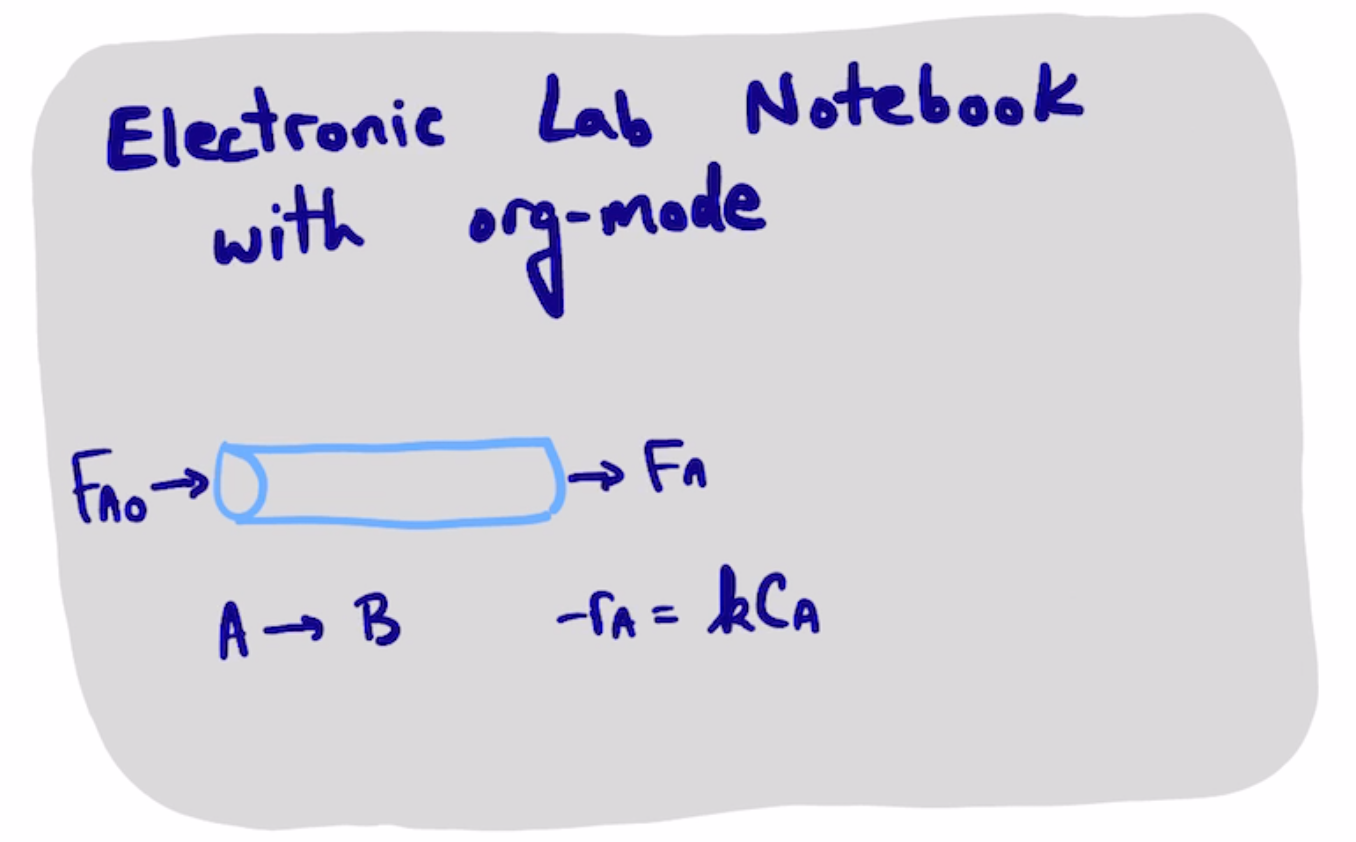 Electronic Lab Notebook
with org-mode
F_A0 → → F_A
A → B -r_A = kC_A